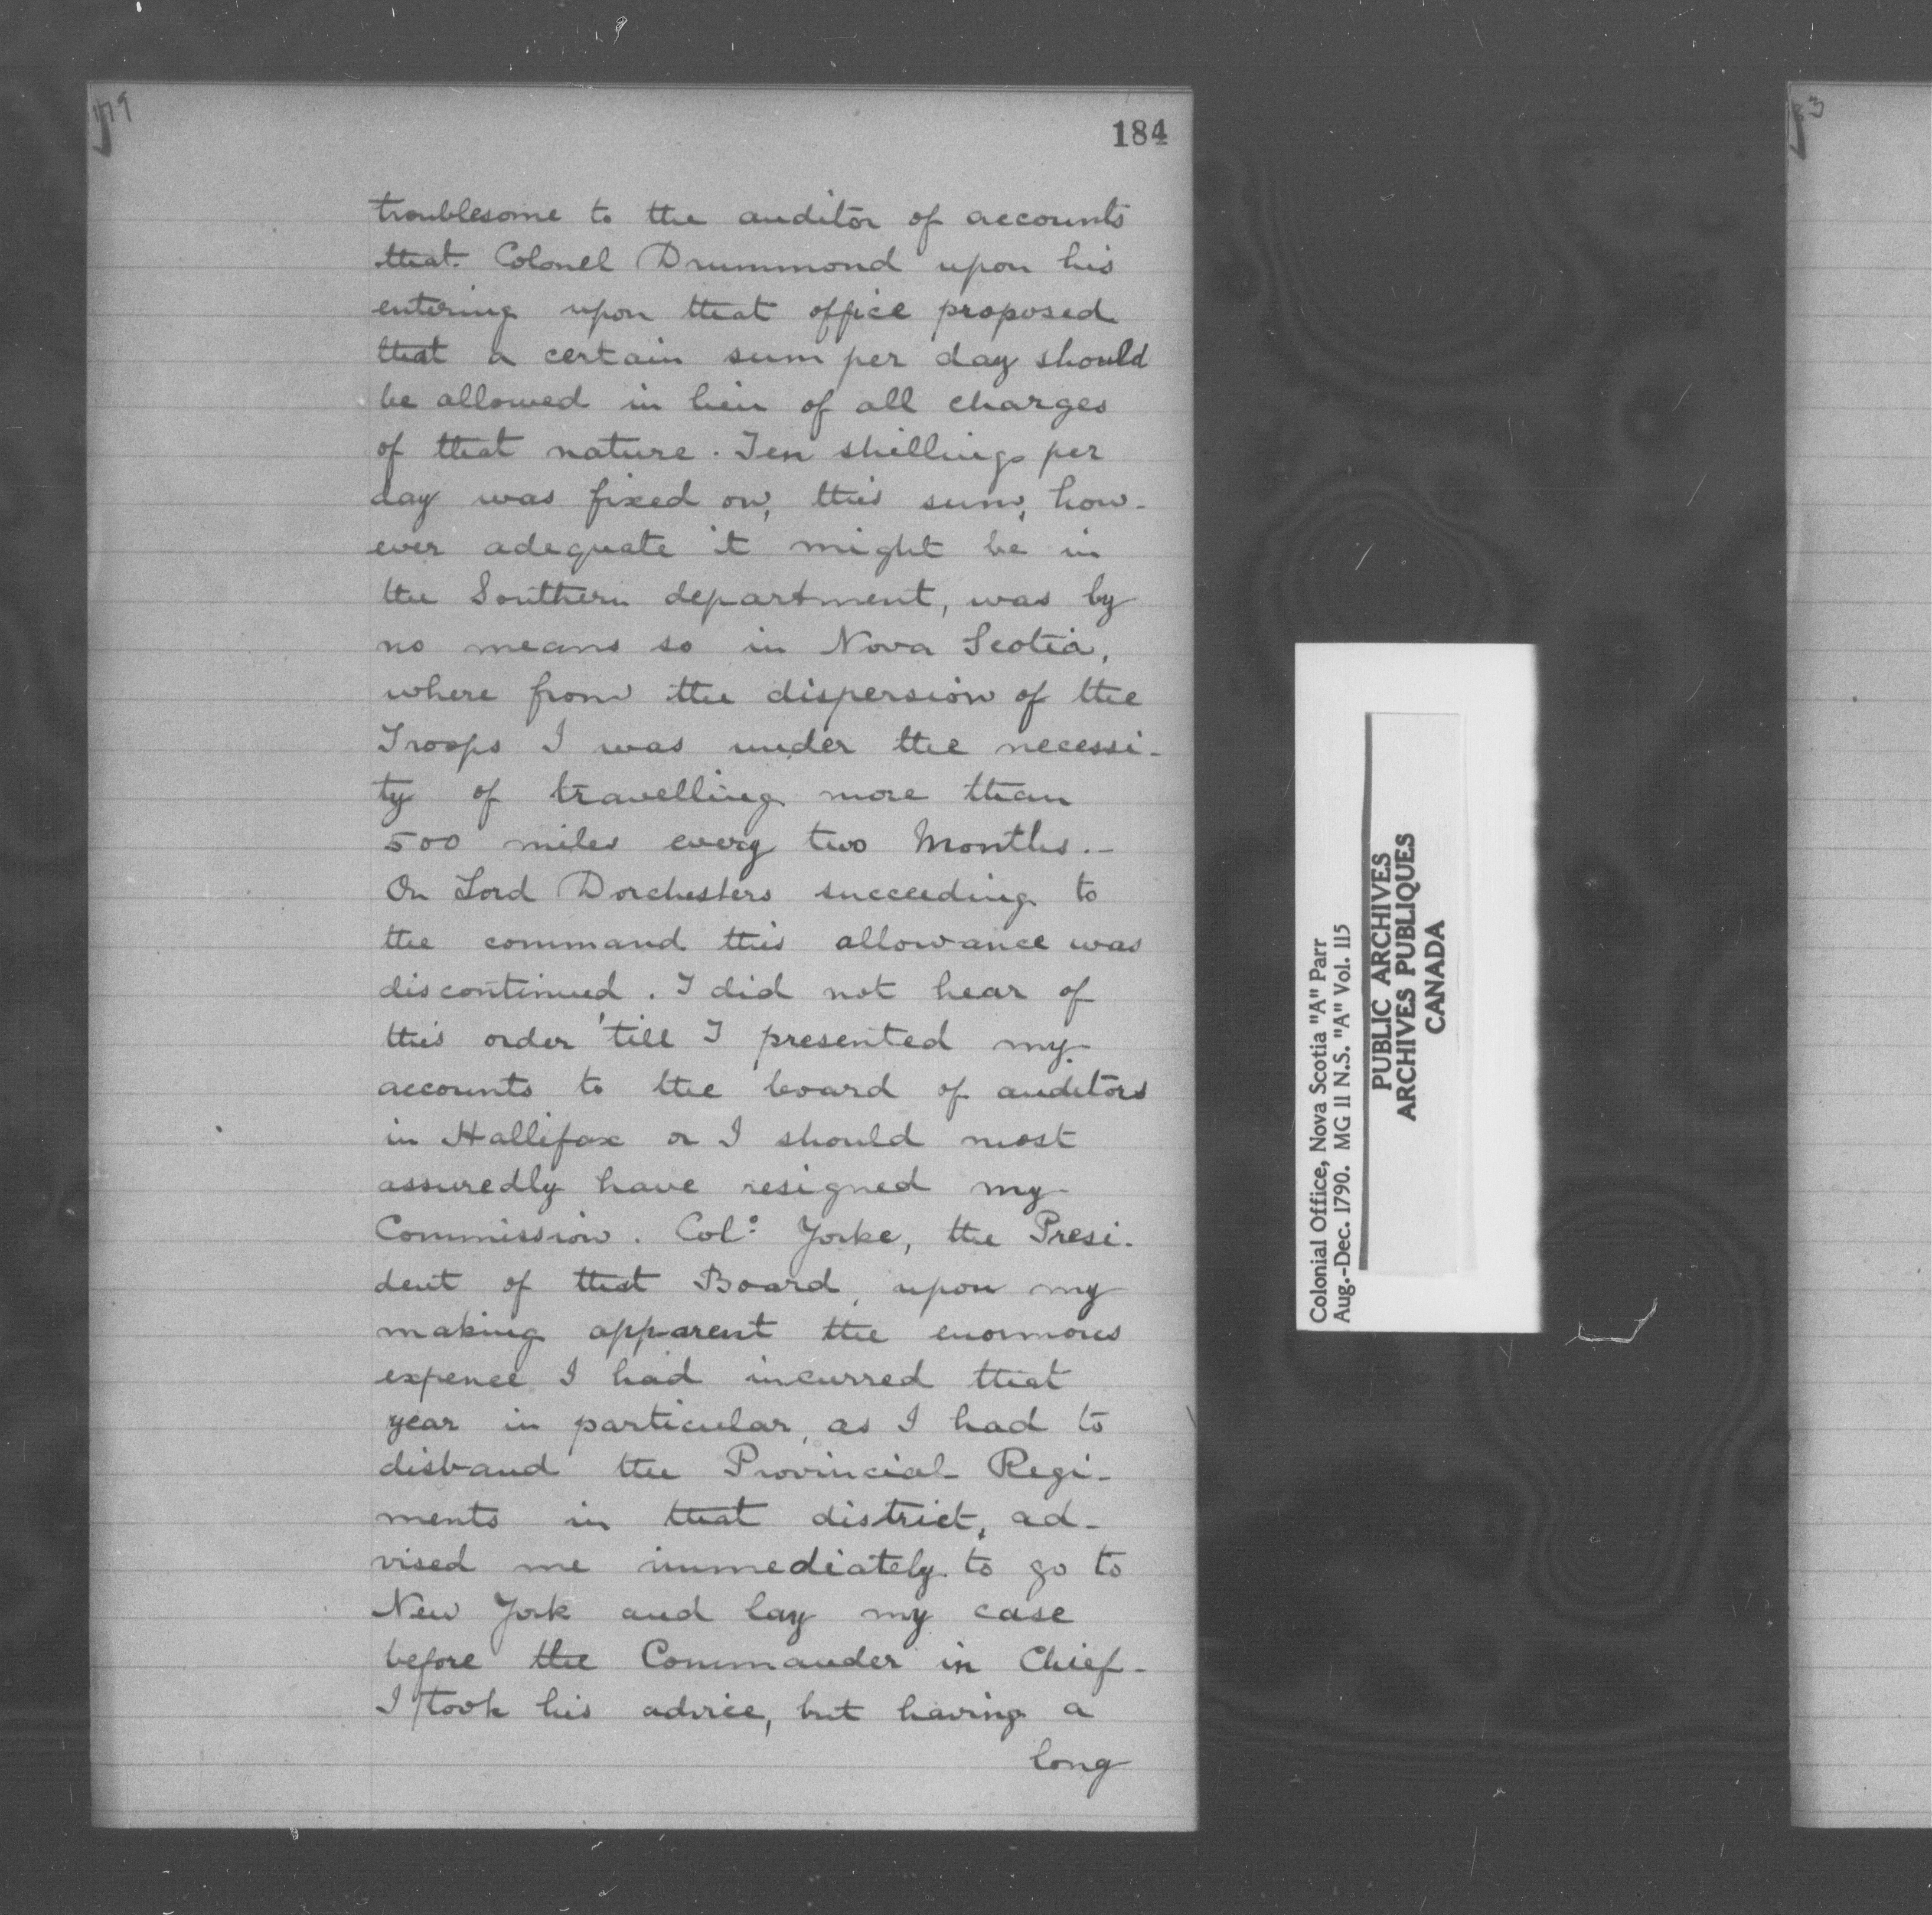 179
184
troublesome to the auditor of accounts
that Colonel Drummond upon his
entering upon that office proposed
that a certain sum per day should
be allowed in lieu of all charges
of that nature. Ten shillings per
day was fixed on, this sum, how-
ever adequate it might be in
the Southern department, was by
no means so in Nova Scotia,
where from the dispersion of the
Troops I was under the necessi-
ty of travelling more than
500 miles every two Months.-
On Lord Dorchesters succeeding to
the command this allowance was
discontinued. I did not hear of
this order 'till I presented my
accounts to the board of auditors
in Hallifax or I should most
assuredly have resigned my
Commission. Colo: Yorke, the Presi-
dent of that Board, upon my
making apparent the enormous
expence I had incurred that
year in particular, as I had to
disband the Provincial Regi-
ments in that district, ad-
vised me immediately to go to
New York and lay my case
before the Commander in Chief-
I took his advice, but having a
long
Colonial Office, Nova Scotia "A" Parr
Aug.-Dec. 1790. MG 11 N.S. "A" Vol. 115
PUBLIC ARCHIVES
ARCHIVES PUBLIQUES
CANADA